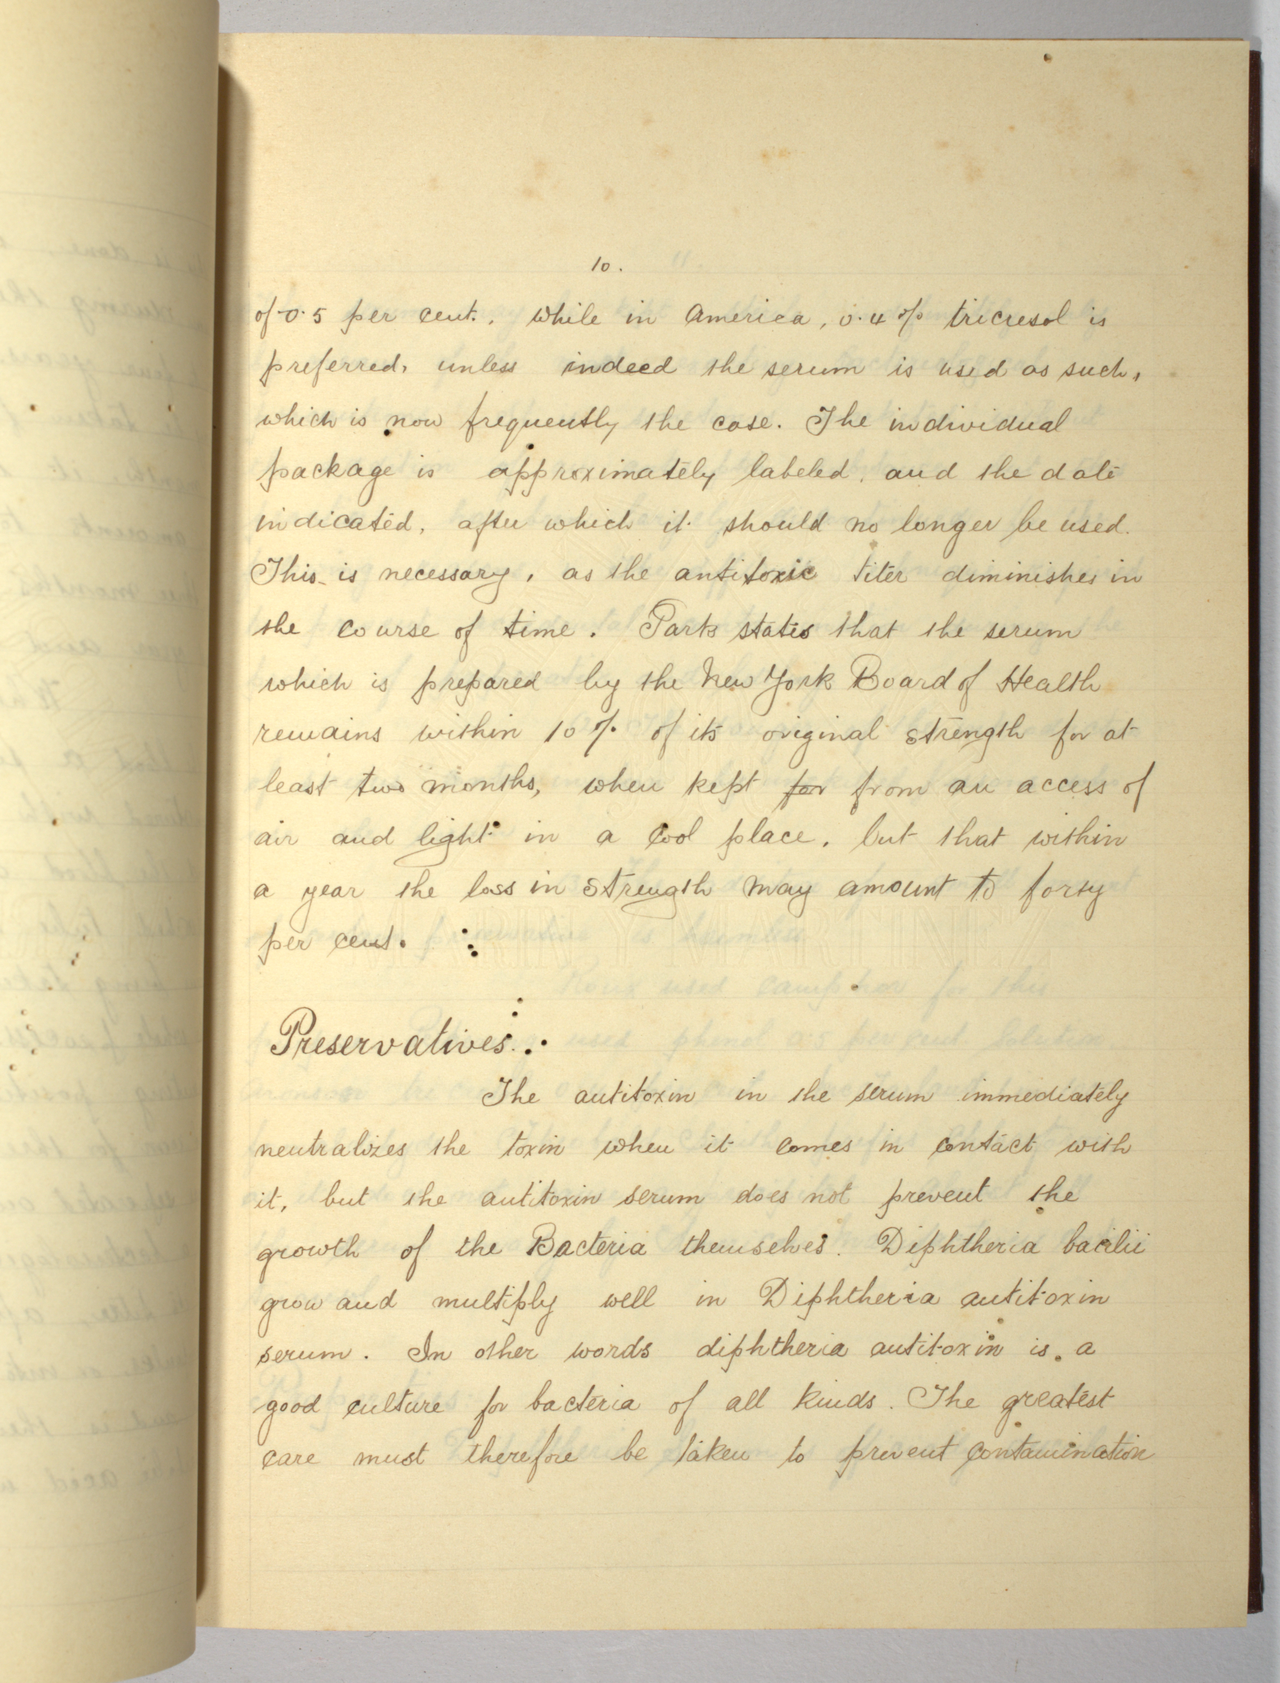 10.
of 0.5 per cent., while in America, 0.4% tricresol is
preferred, unless indeed the serum is used as such,
which is now frequently the case. The individual
package is approximately labeled, and the date
indicated, after which it should no longer be used.
This is necessary, as the antitoxic titer diminishes in
the course of time. Park states that the serum
which is prepared by the New York Board of Health
remains within 10% of its original strength for at
least two months, when kept for from an access of
air and light in a cool place, but that within
a year the loss in strength may amount to forty
per cent.
Preservatives.
The antitoxin in the serum immediately
neutralizes the toxin when it comes in contact with
it, but the antitoxin serum does not prevent the
growth of the Bacteria themselves. Diphtheria bacilii
grow and multiply well in Diphtheria antitoxin
serum. In other words diphtheria antitoxin is a
good culture for bacteria of all kinds. The greatest
care must therefore be taken to prevent contamination